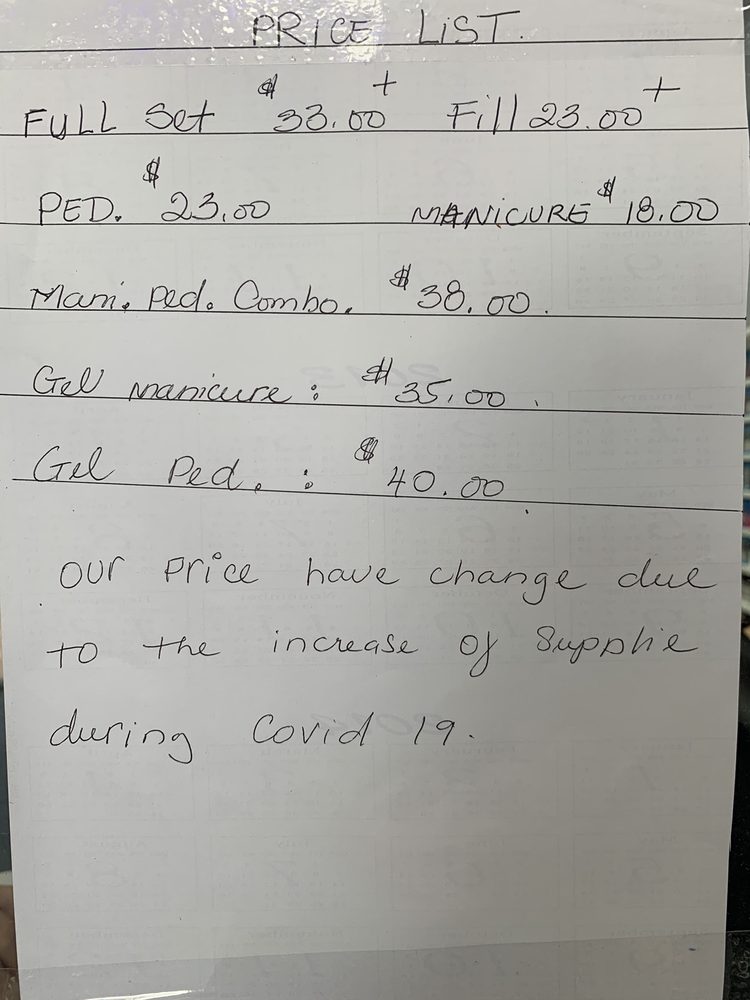 PRICE LIST.
FULL Set $33.00+ Fill 23.00+
PED. $23.00 MANICURE $18.00
Mani. Ped. Combo. $38.00.
Gel manicure: $35.00.
Gel Ped. : $40.00
OUR PRICE have change due
to the increase of Supplie
during Covid 19.